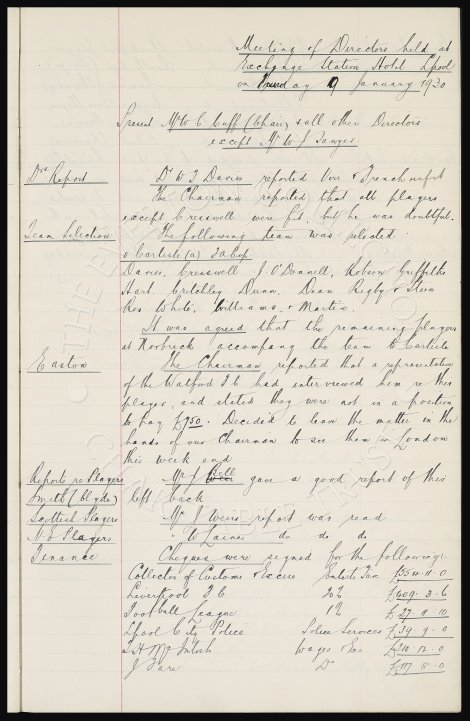 Meeting of Directors held at
Exchange Station Hotel Lpool
on Thursday 9 January 1930
Present Mr W C Cuff (Chair) & all other Directors
except Mr W J Sawyer
Drs Report
Dr W J Davies reported Virr & French unfit
The Chairman reported that all players
except Cresswell were fit, but he was doubtful.
Team Selection
The following team was selected
v Carlisle (a) FA Cup
Davies, Cresswell J. O'Donnell, Robson Griffiths
Hart. Critchley Dunn, Dean Rigby & Stein
Res White, Williams, & Martin.
It was agreed that the remaining players
at accompany the team to Carlisle
Easton
The Chairman reported that a representative
of the Watford FC had interviewed him re this
player, and stated they were not in a position
to pay £750. Decided to leave the matter in the
hands of our Chairman to see them in London
this week end
Reports re Players
Mr J Bell gave a good report of this
Smith (Clyde)
left back
Scottish Players
Mr J Weirs report was read
N E Players
" W Laines do do do
Finance
Cheques were signed for the following:
Collector of Customs & Excise Entert. Tax £554.11.0
Liverpool FC £409.3.6
Football League 1% £37.11.10
Lpool City Police Police Services £39.9.0
McIntosh Wages
J Pare Do £117.8.0